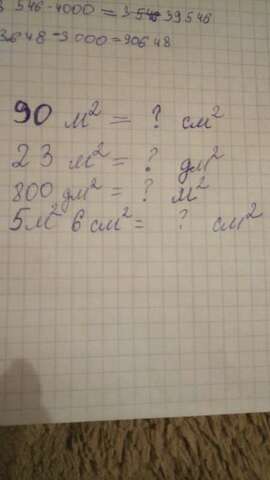 546-4000=39546
3648-3000=90648
90 м² = ? см²
23 м² = ? дм²
800 дм² = ? м²
5м² 6 см² = ? см²